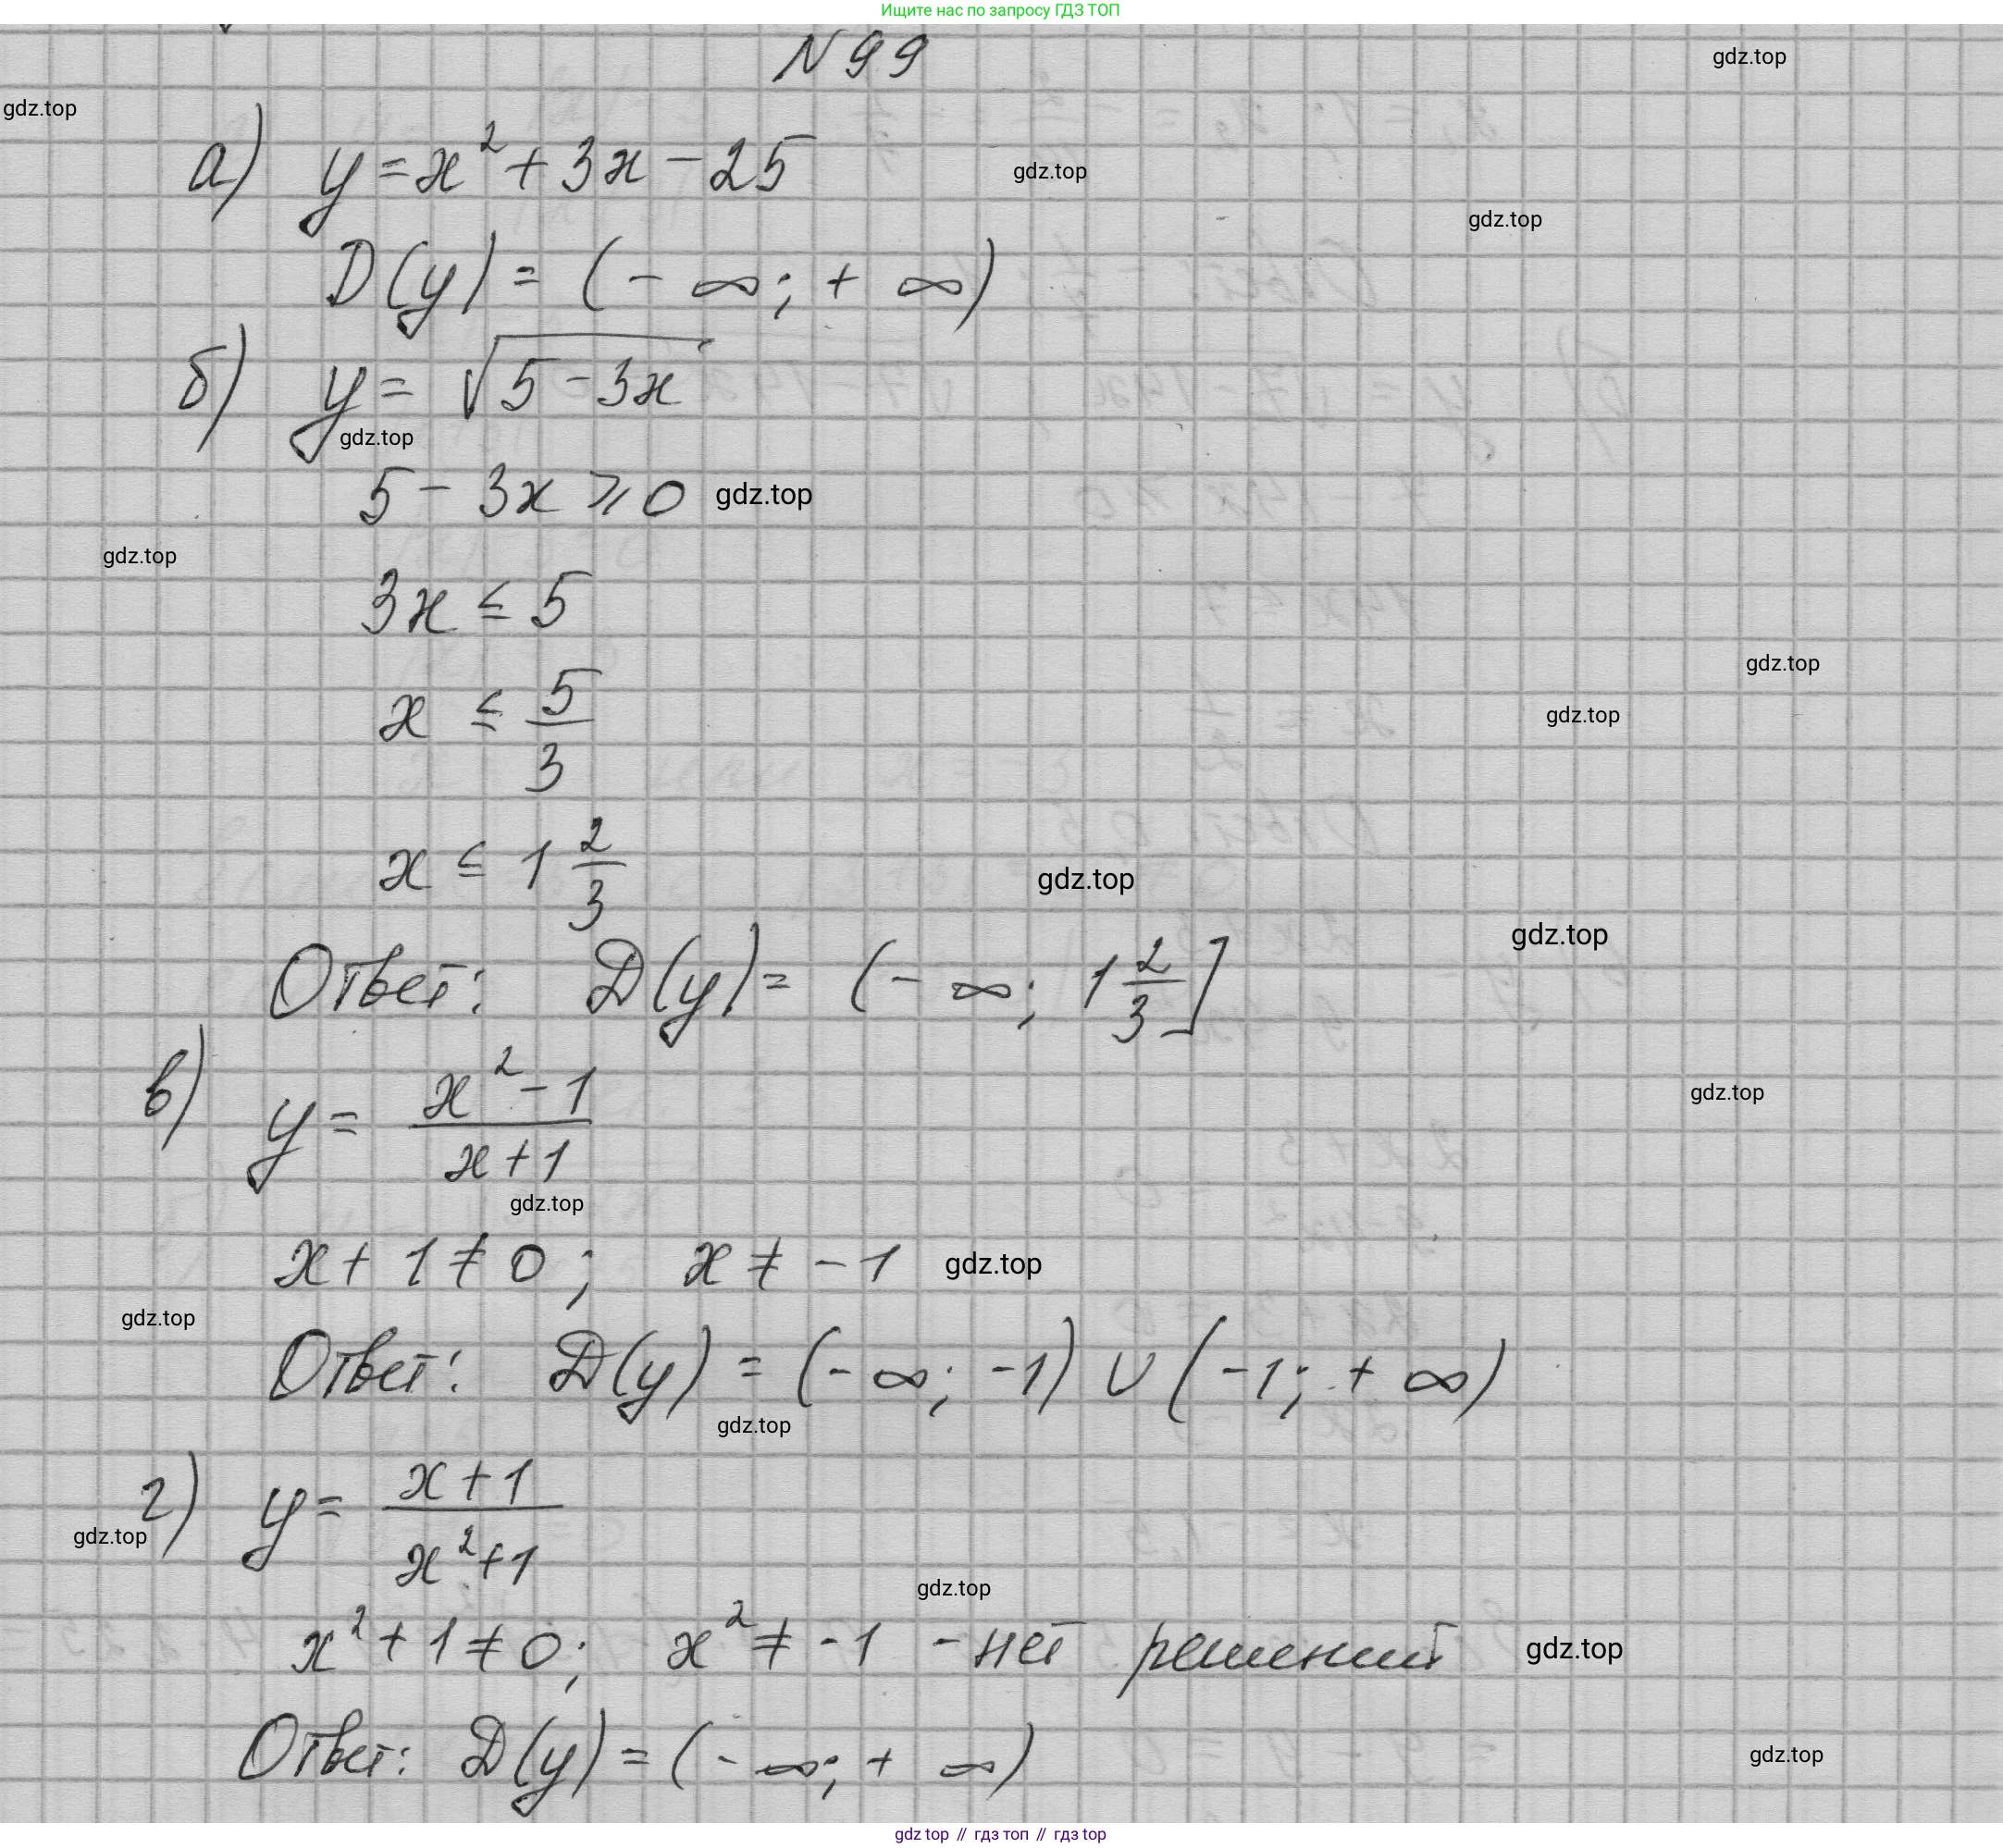 Ищите нас по запросу ГДЗ ТОП
N 99
gdz.top
gdz.top
а) y = x² + 3x - 25
gdz.top
gdz.top
D(y) = (- ∞; + ∞)
б) y = √(5 - 3x)
gdz.top
5 - 3x ⩾ 0 gdz.top
gdz.top
3x ≤ 5
gdz.top
x ≤ 5/3
gdz.top
x ≤ 1 2/3
gdz.top
gdz.top
Ответ: D(y) = (- ∞; 1 2/3]
gdz.top
в) y = (x² - 1)/(x + 1)
gdz.top
x + 1 ≠ 0; x ≠ -1 gdz.top
gdz.top
Ответ: D(y) = (- ∞; -1) ∪ (-1; + ∞)
gdz.top
г) y = (x + 1)/(x² + 1)
gdz.top
gdz.top
x² + 1 ≠ 0; x² ≠ -1 - нет решений gdz.top
Ответ: D(y) = (- ∞; + ∞)
gdz.top
gdz top // гдз топ // гдз top